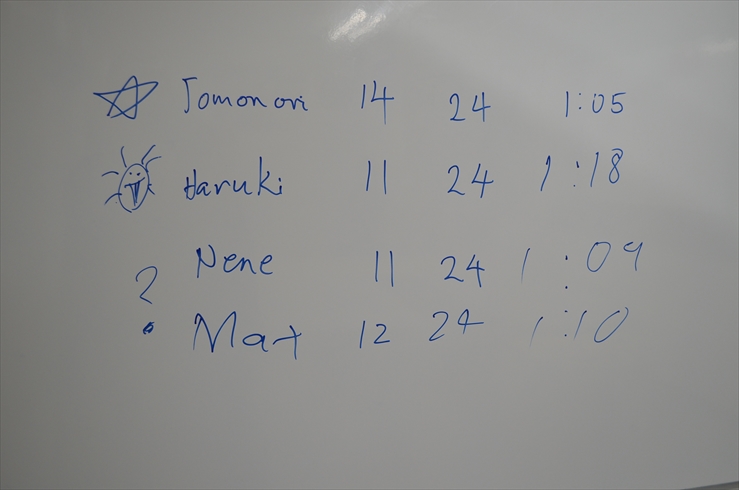 Tomonori 14 24 1:05
Haruki 11 24 1:18
Nene 11 24 1:09
? Max 12 24 1:10